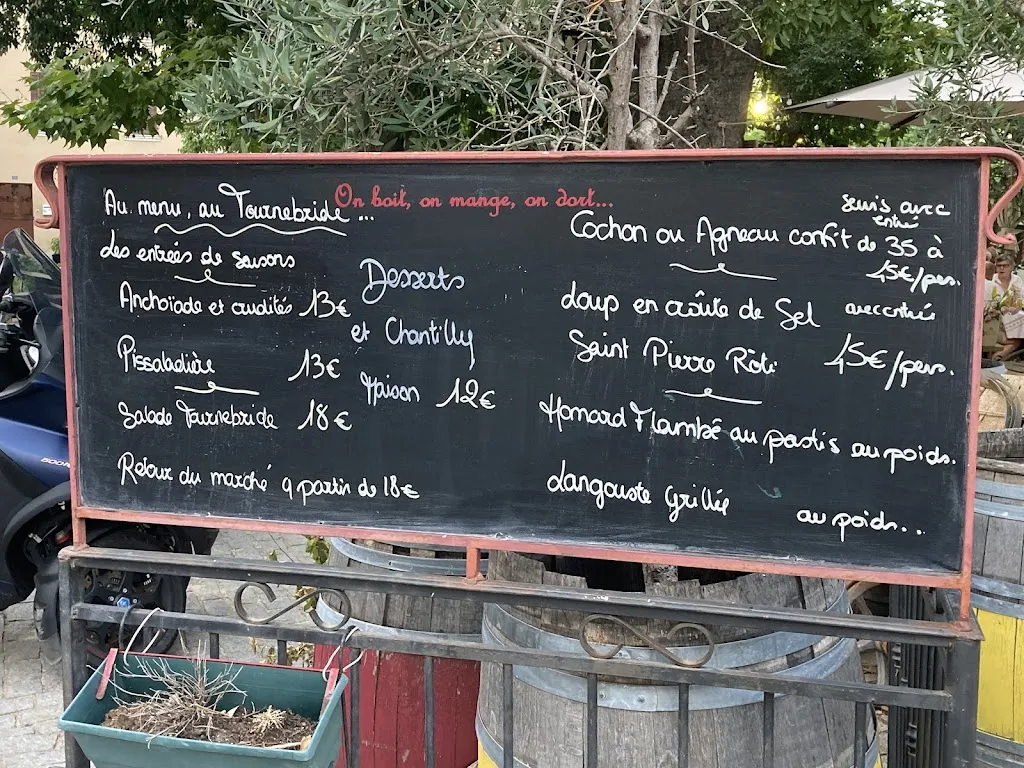 On boit, on mange, on dort...
Au menu, au Tournebride ...
des entrées de saisons
Anchoïade et crudités 13€
Pissaladière 13€
Salade Tournebride 18€
Retour du marché a partir de 18€
Desserts
et Chantilly
Maison 12€
servis avec
entrée
Cochon ou Agneau confit de 35 à
45€/pers.
Loup en croûte de Sel avec entrée
Saint Pierre Rôti 45€/pers.
Homard Flambé au pastis au poids.
Langouste Grillée au poids...
500